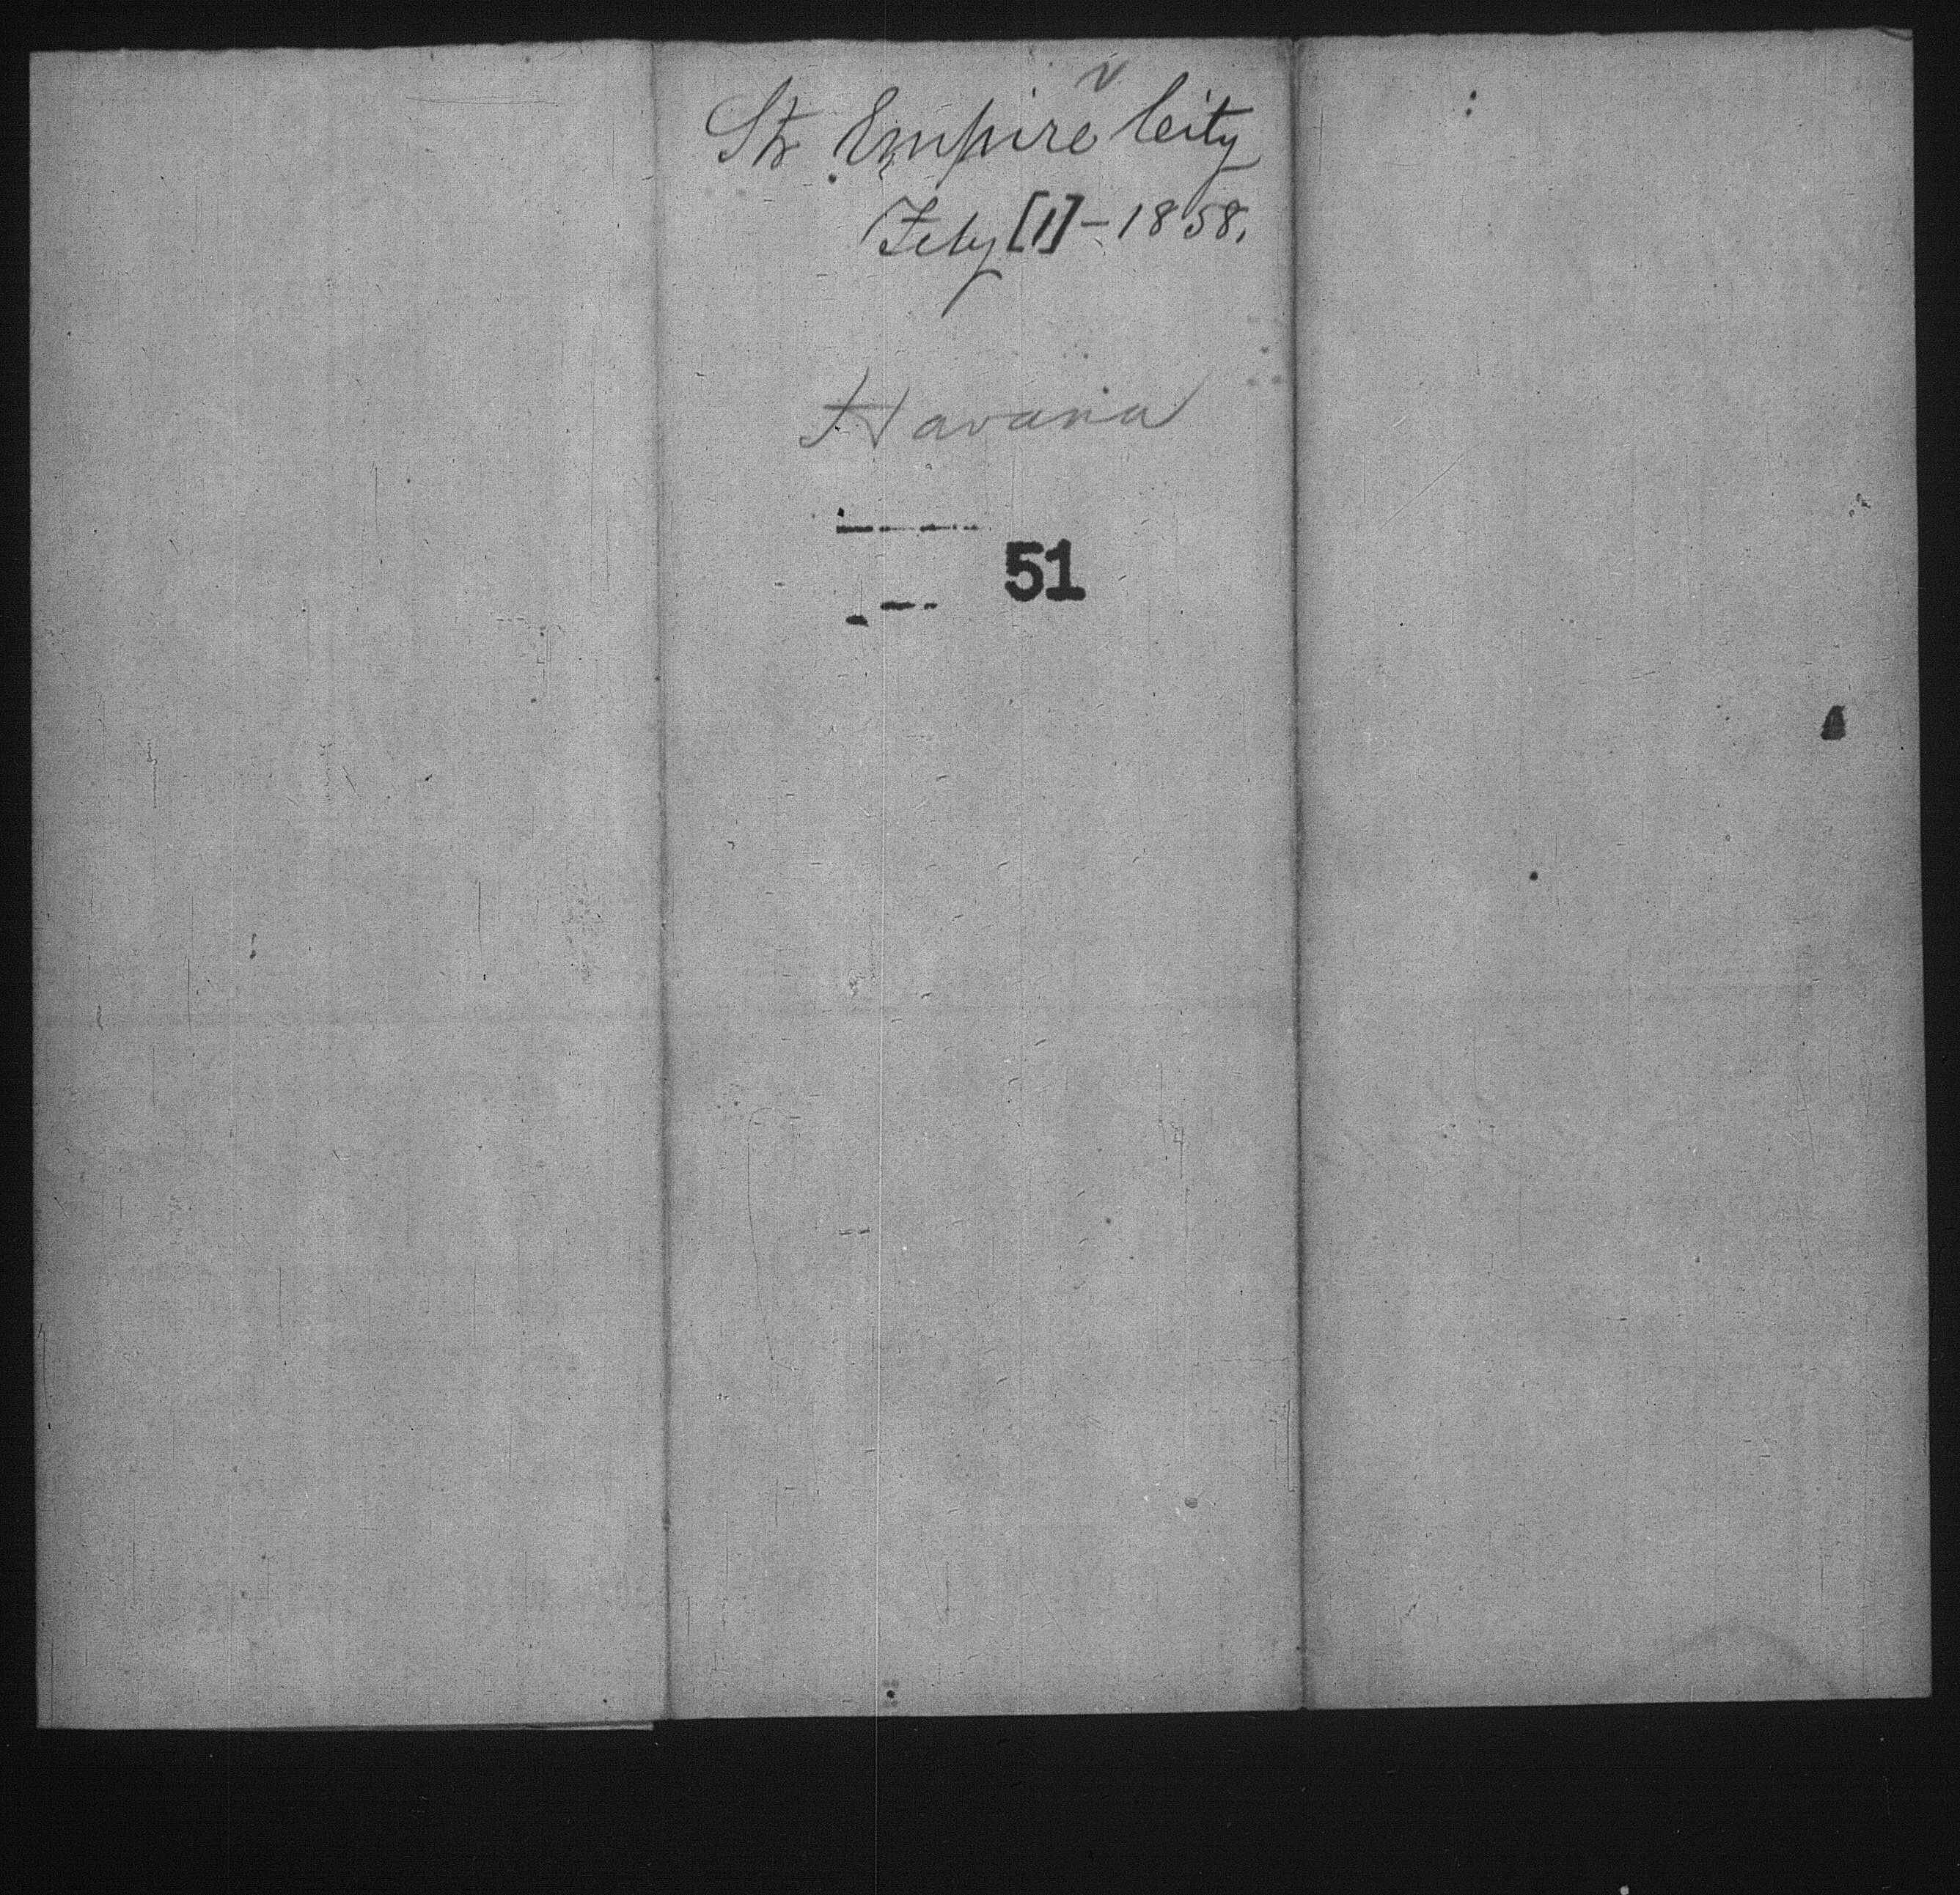 Str Empire City
Feby [1] - 1858.
Havana
51